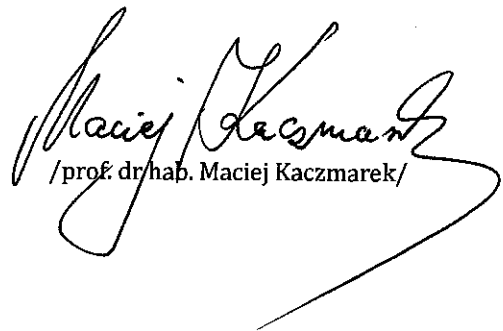 Maciej Kaczmarek
/prof. dr hab. Maciej Kaczmarek/